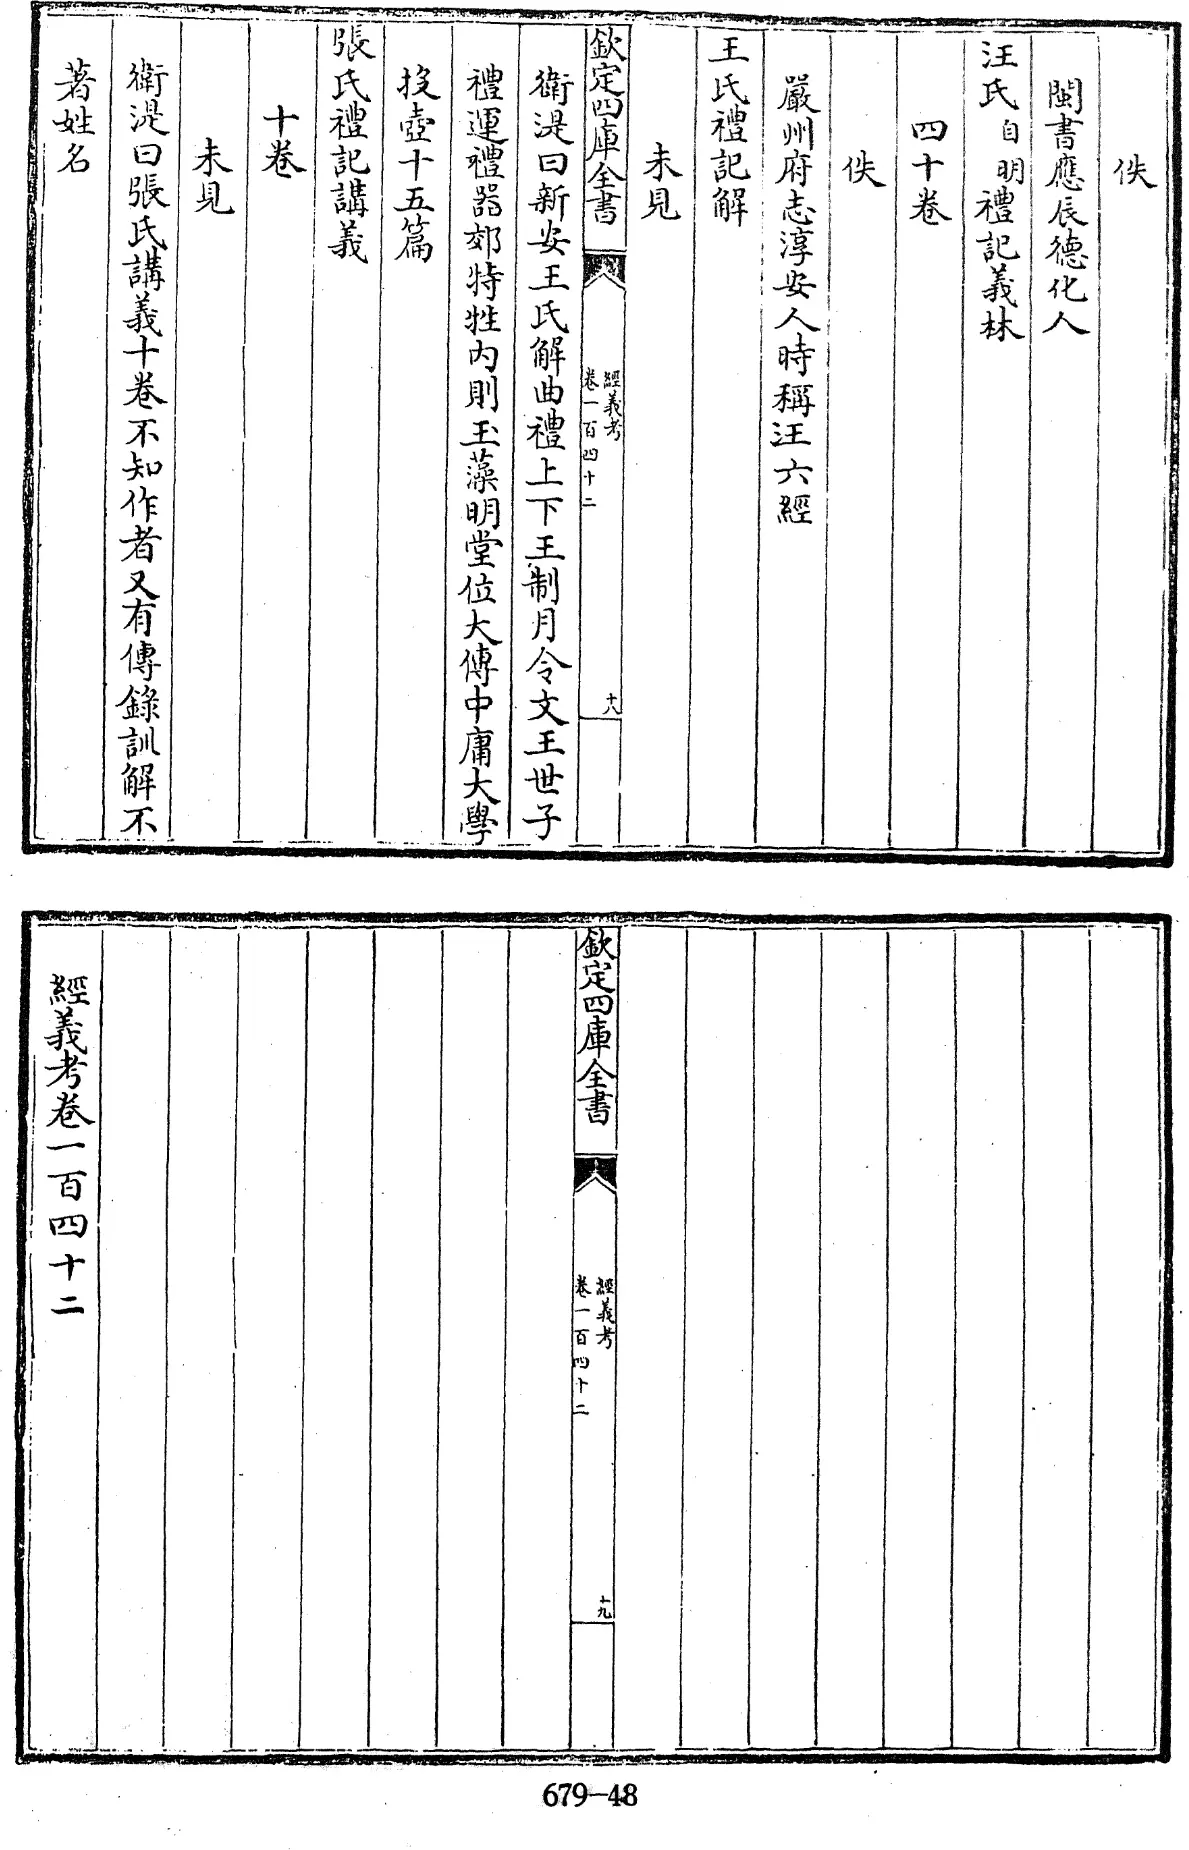 佚
閩書應辰德化人
汪氏自明禮記義林
四十卷
佚
嚴州府志淳安人時稱汪六經
王氏禮記解
未見
欽定四庫全書
經義考
卷一百四十二
十八
衛湜曰新安王氏解曲禮上下王制月令文王世子
禮運禮器郊特牲内則玉藻明堂位大傳中庸大學
投壺十五篇
張氏禮記講義
十卷
未見
衛湜曰張氏講義十卷不知作者又有傳錄訓解不
著姓名
欽定四庫全書
經義考
卷一百四十二
十九
經義考卷一百四十二
679-48